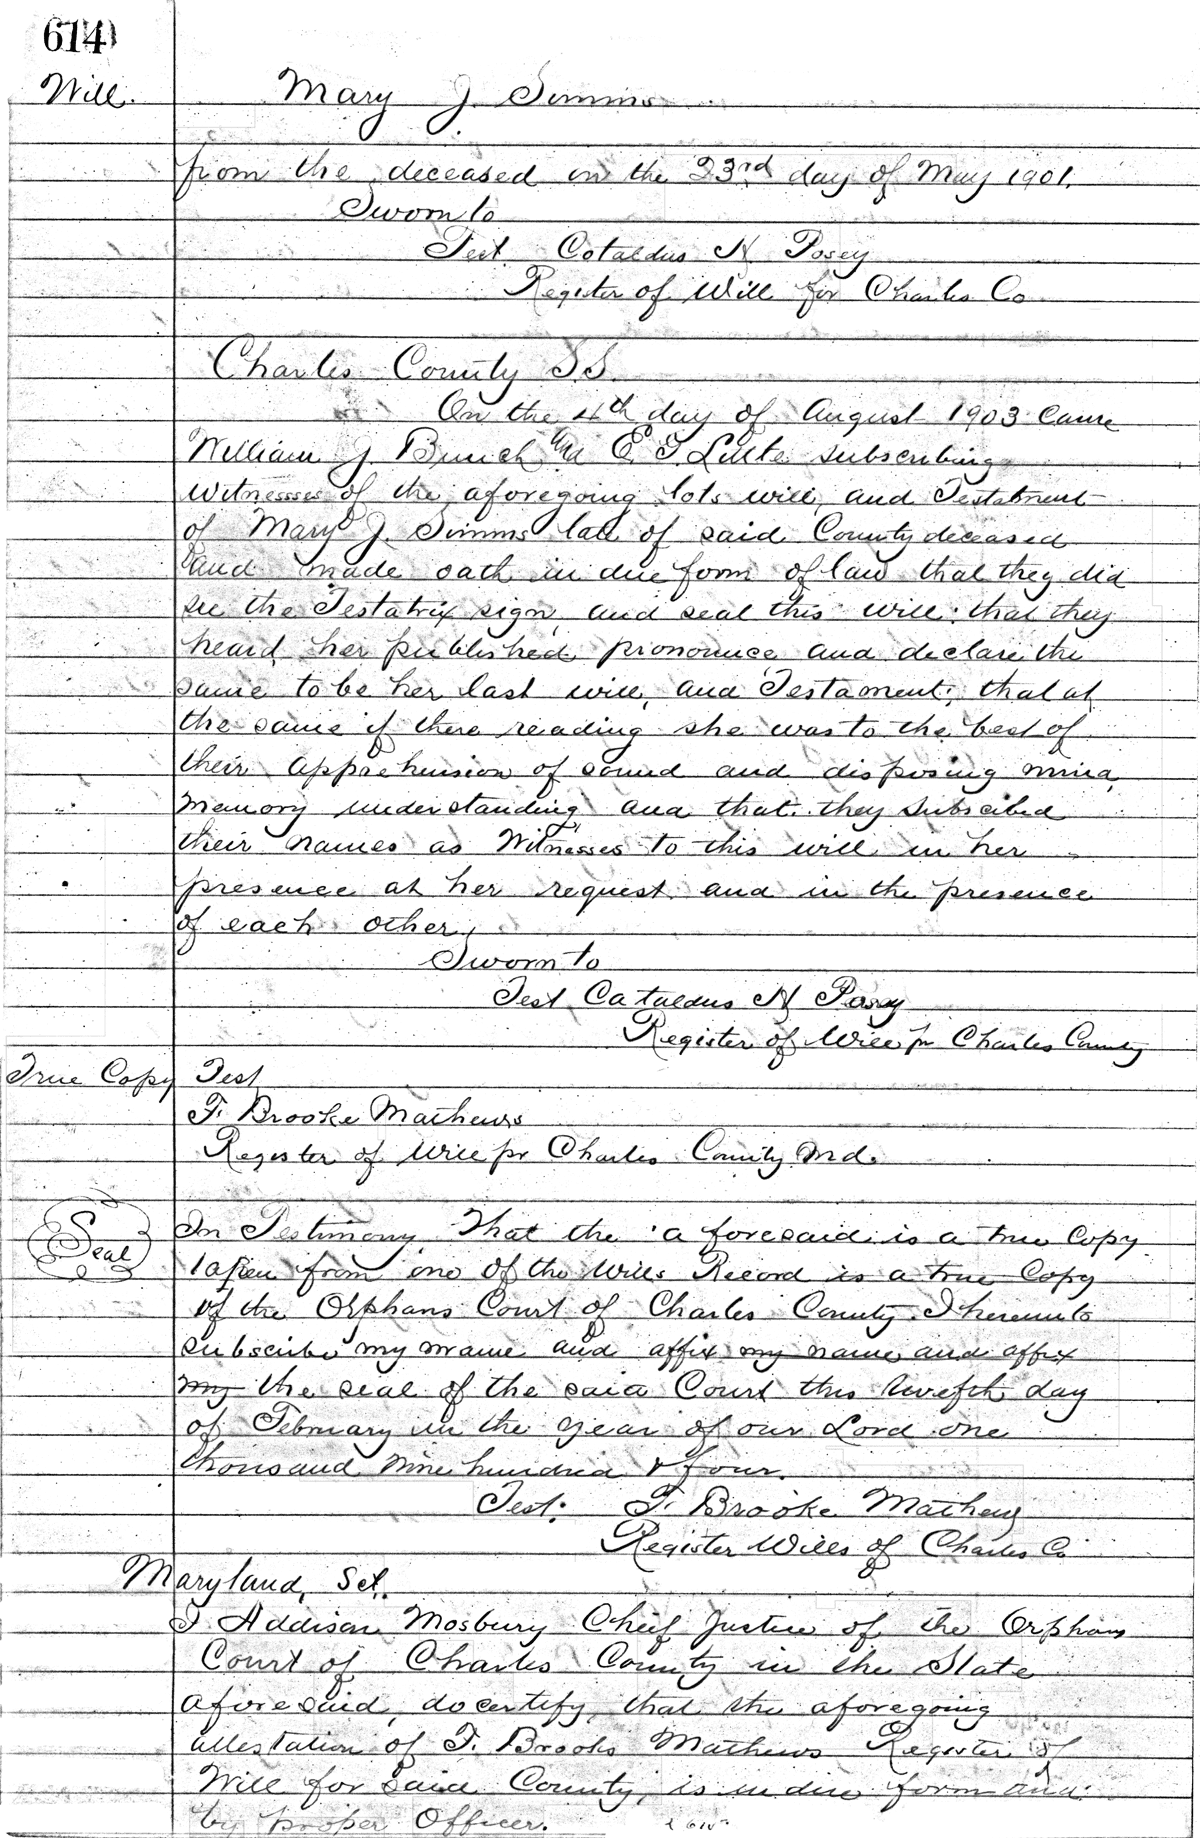 614
Will. Mary J. Simms
from the deceased on the 23rd day of May 1901.
Sworn to
Test Cotaldus N Posey
Register of Will for Charles Co
Charles County SS.
On the 4th day of August 1903 came
William J. Bunch and E. T. Lutte subscribing
Witnessses of the aforegoing lots will, and Testatment
of Mary J. Simms late of said County deceased
and made oath in due form of law that they did
see the Testatrix sign, and seal this will: that they
heard her published, pronounce and declare the
same to be her last will, and Testament; that at
the same if there reading she was to the best of
their apprehension of sound and disposing mind,
memory understanding and that they subscibed
their names as Witnesses to this will in her
presence at her request and in the presence
of each other,
Sworn to
Test Cataldus N Posey
Register of Will for Charles County
True Copy Test
F. Brooke Mathews
Register of Will for Charles County Md.
Seal
In Testimony, That the aforesaid is a true Copy
taken from one of the Wills Record is a true Copy
of the Orphans Court of Charles County I hereunto
subscribe my name and affix my name and affix
my the seal of the said Court this twefth day
of February in the year of our Lord one
thousand nine hundred & four.
Test: F. Brooke Mathews
Register Wills of Charles Co
Maryland, Sct.
I Addison Mosbury Chief Justice of the Orphans
Court of Charles County in the State
aforesaid, do certify, that the aforegoing
attestation of F. Brooks Mathews Register of
Will for said County, is in due form and
by proper Officer.